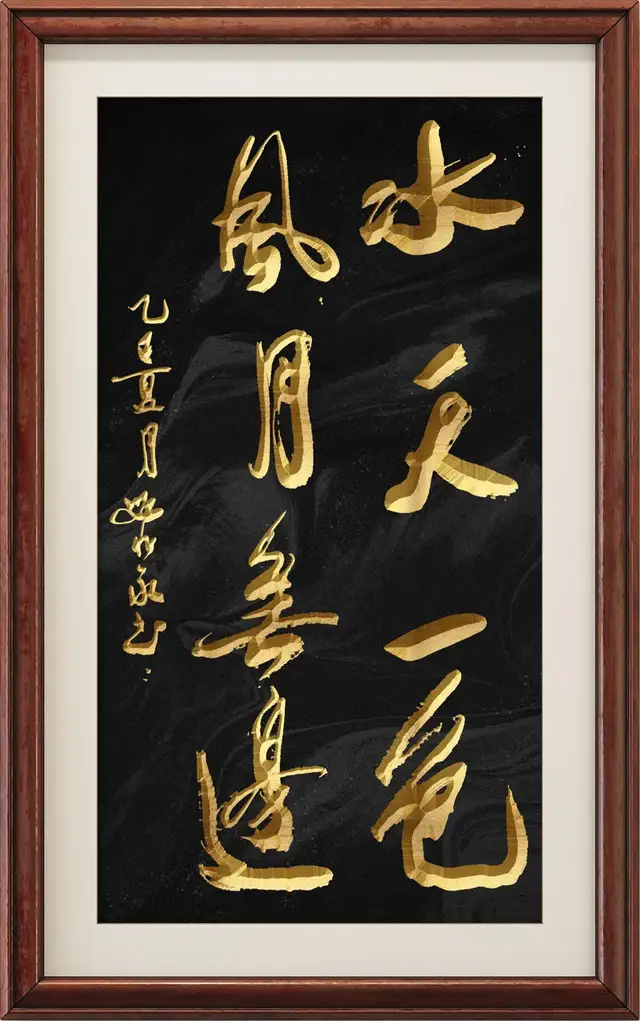 水天一色
風月無邊
乙巳夏月
永書